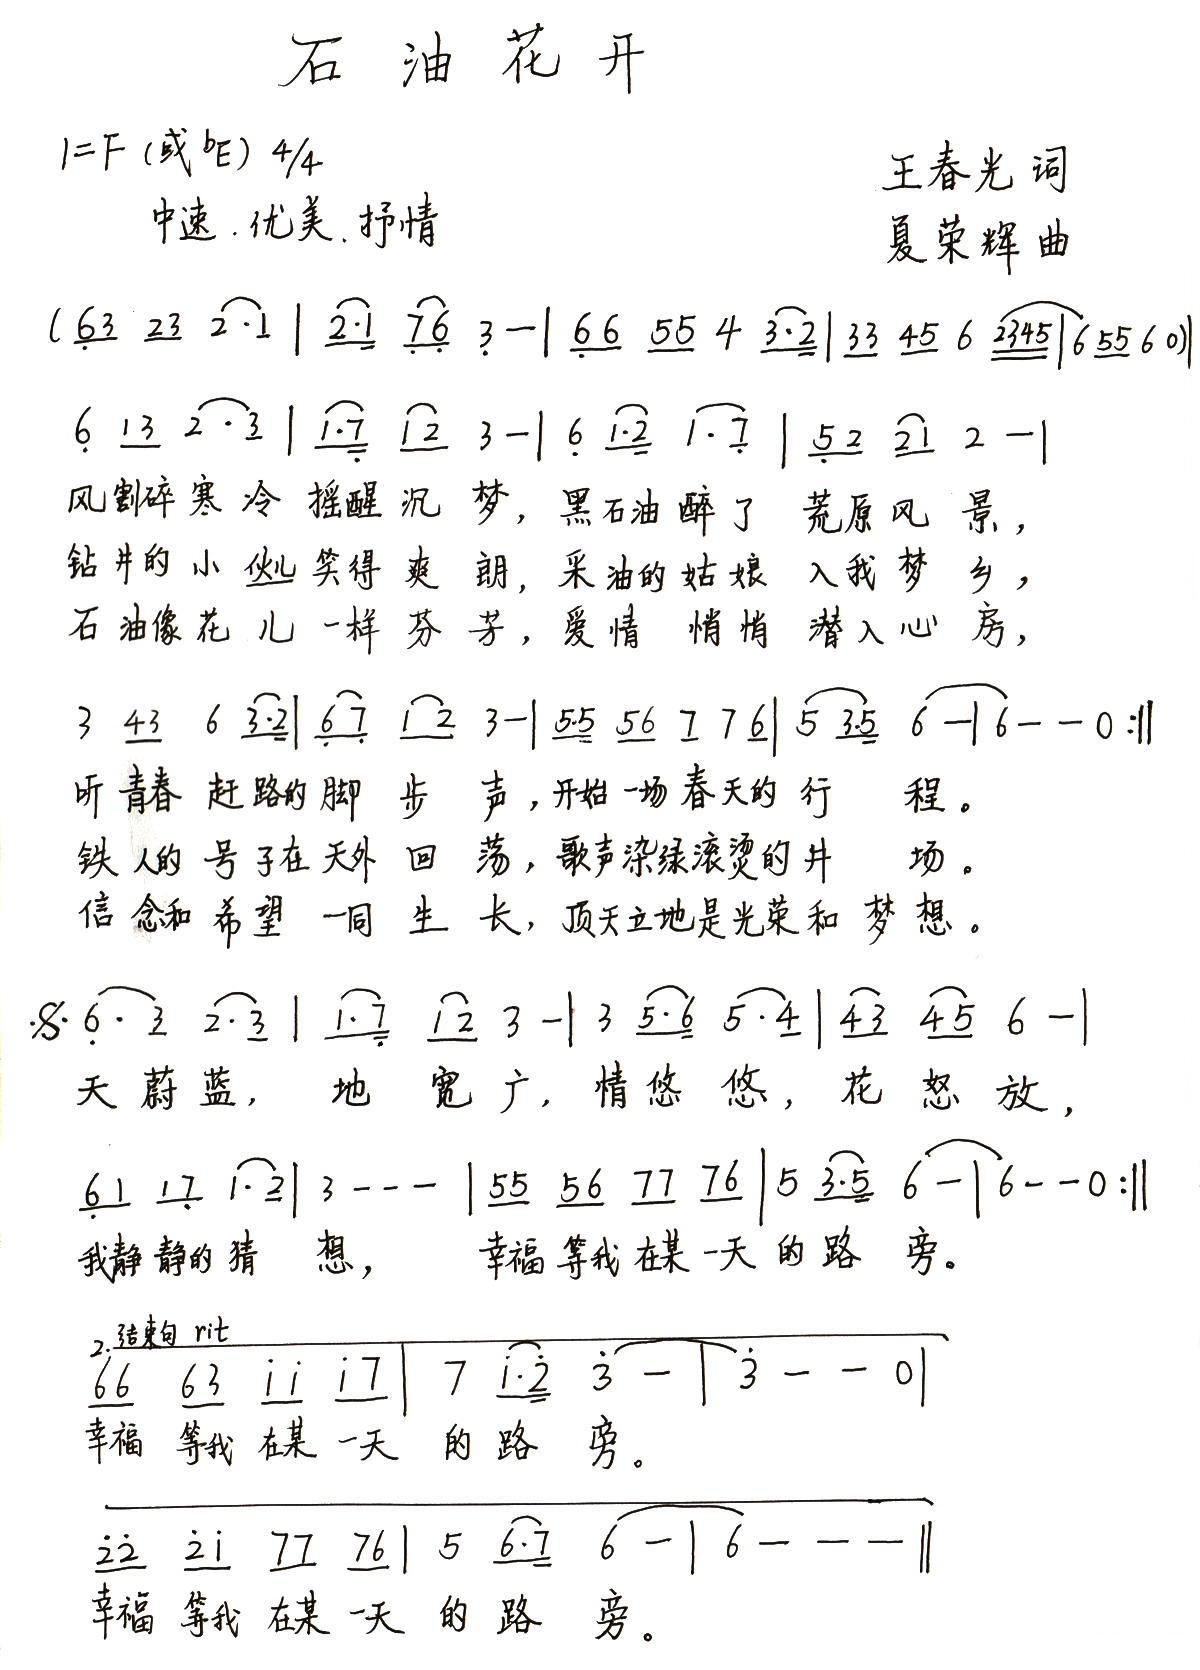 石油花开
1=F（或bE）4/4
王春光 词
中速.优美.抒情
夏荣辉 曲
(63 23 2·1 | 2·1 76 3 — | 66 55 4 3·2 | 33 45 6 2345 | 6 55 6 0)|
6 13 2·3 | 1·7 12 3 — | 6 1·2 1·7 | 52 21 2 — |
风割碎寒冷摇醒沉梦，黑石油醉了荒原风景，
钻井的小伙儿笑得爽朗，采油的姑娘入我梦乡，
石油像花儿一样芬芳，爱情悄悄潜入心房，
3 43 6 3·2 | 67 12 3 — | 5·5 56 7 7 6 | 5 3·5 6 — | 6 — — 0 :||
听青春赶路的脚步声，开始一场春天的行程。
铁人的号子在天外回荡，歌声染绿滚烫的井场。
信念和希望一同生长，顶天立地是光荣和梦想。
𝄋 6·3 2·3 | 1·7 12 3 — | 3 5·6 5·4 | 43 45 6 — |
天蔚蓝，地宽广，情悠悠，花怒放，
61 17 1·2 | 3 - - - | 55 56 77 76 | 5 3·5 6 — | 6 — — 0 :||
我静静的猜想，幸福等我在某一天的路旁。
2.结束句 rit
66 63 i̇i̇ i̇7 | 7 i̇·2̇ 3̇ — | 3̇ — — 0 |
幸福等我在某一天的路旁。
2̇2̇ 2̇i̇ 77 76 | 5 6·7 6 — | 6 — — — ||
幸福等我在某一天的路旁。